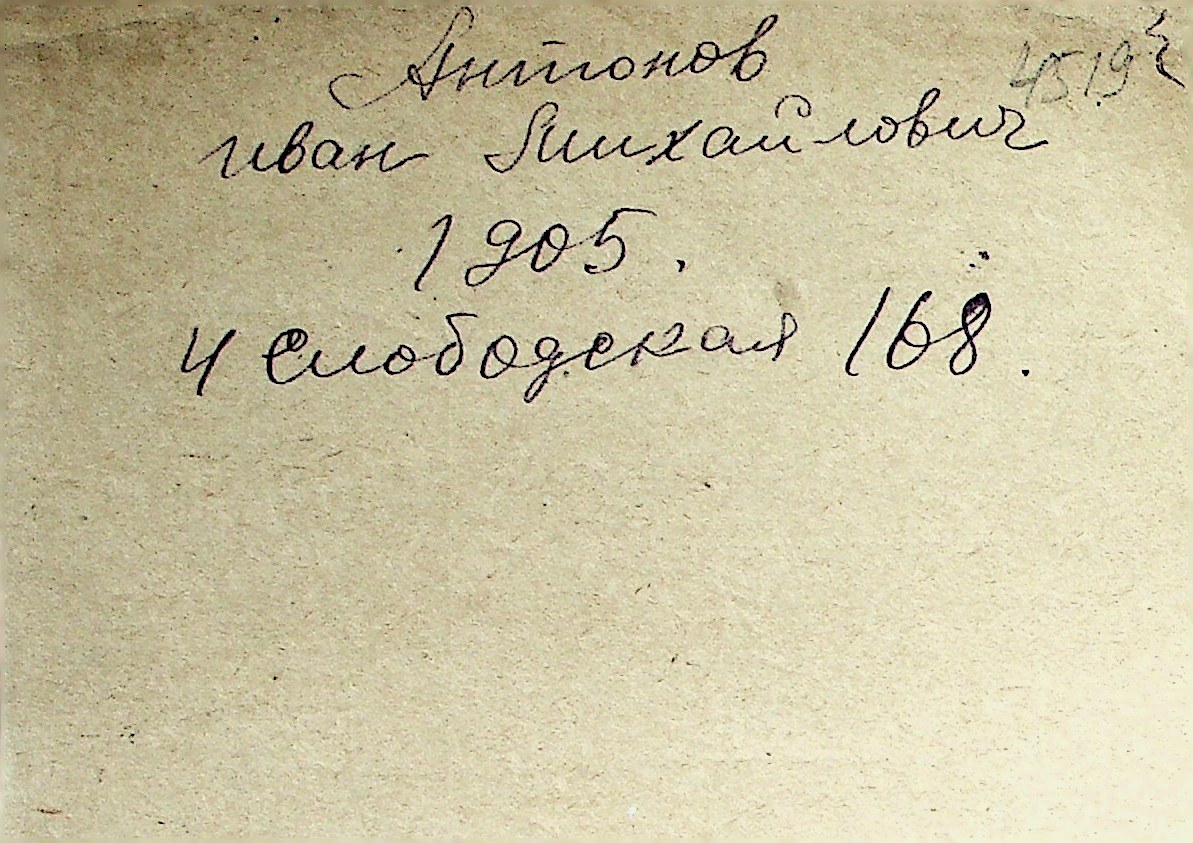 Антонов 4519
иван Михайлович
1905.
4 Слободская 168.